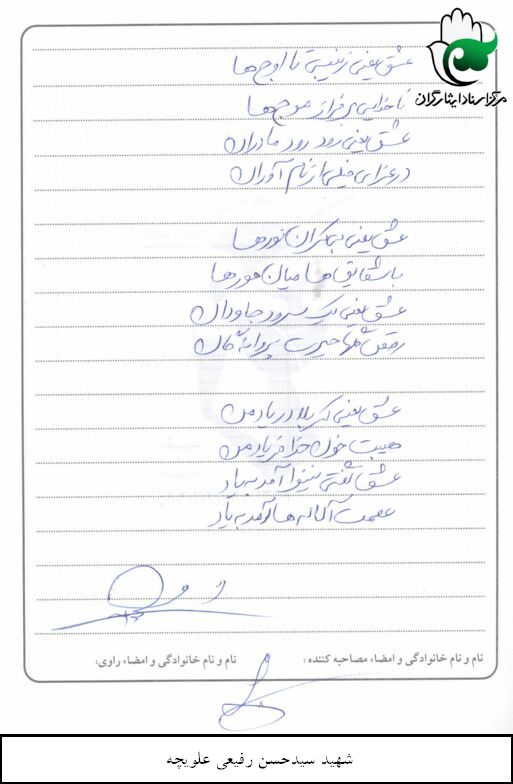 مرکز اسناد ایثارگران
عشق یعنی زینبی تا اوج‌ها
ناخدایی بر فراز موج‌ها
عشق یعنی رود رود مادران
در عزای خیلی از نام آوران
عشق یعنی بیکران نورها
با شقایق‌ها میان هورها
عشق یعنی یک سرود جاودان
رقص گلها حیرت پروانگان
عشق یعنی کربلا در یاد من
هیبت خون خدا فریاد من
عشق گفتی نینوا آمد به یاد
عصمت آلاله‌ها آمد به یاد
نام و نام خانوادگی و امضاء مصاحبه کننده :
نام و نام خانوادگی و امضاء راوی:
۸
شهید سیدحسن رفیعی علویچه